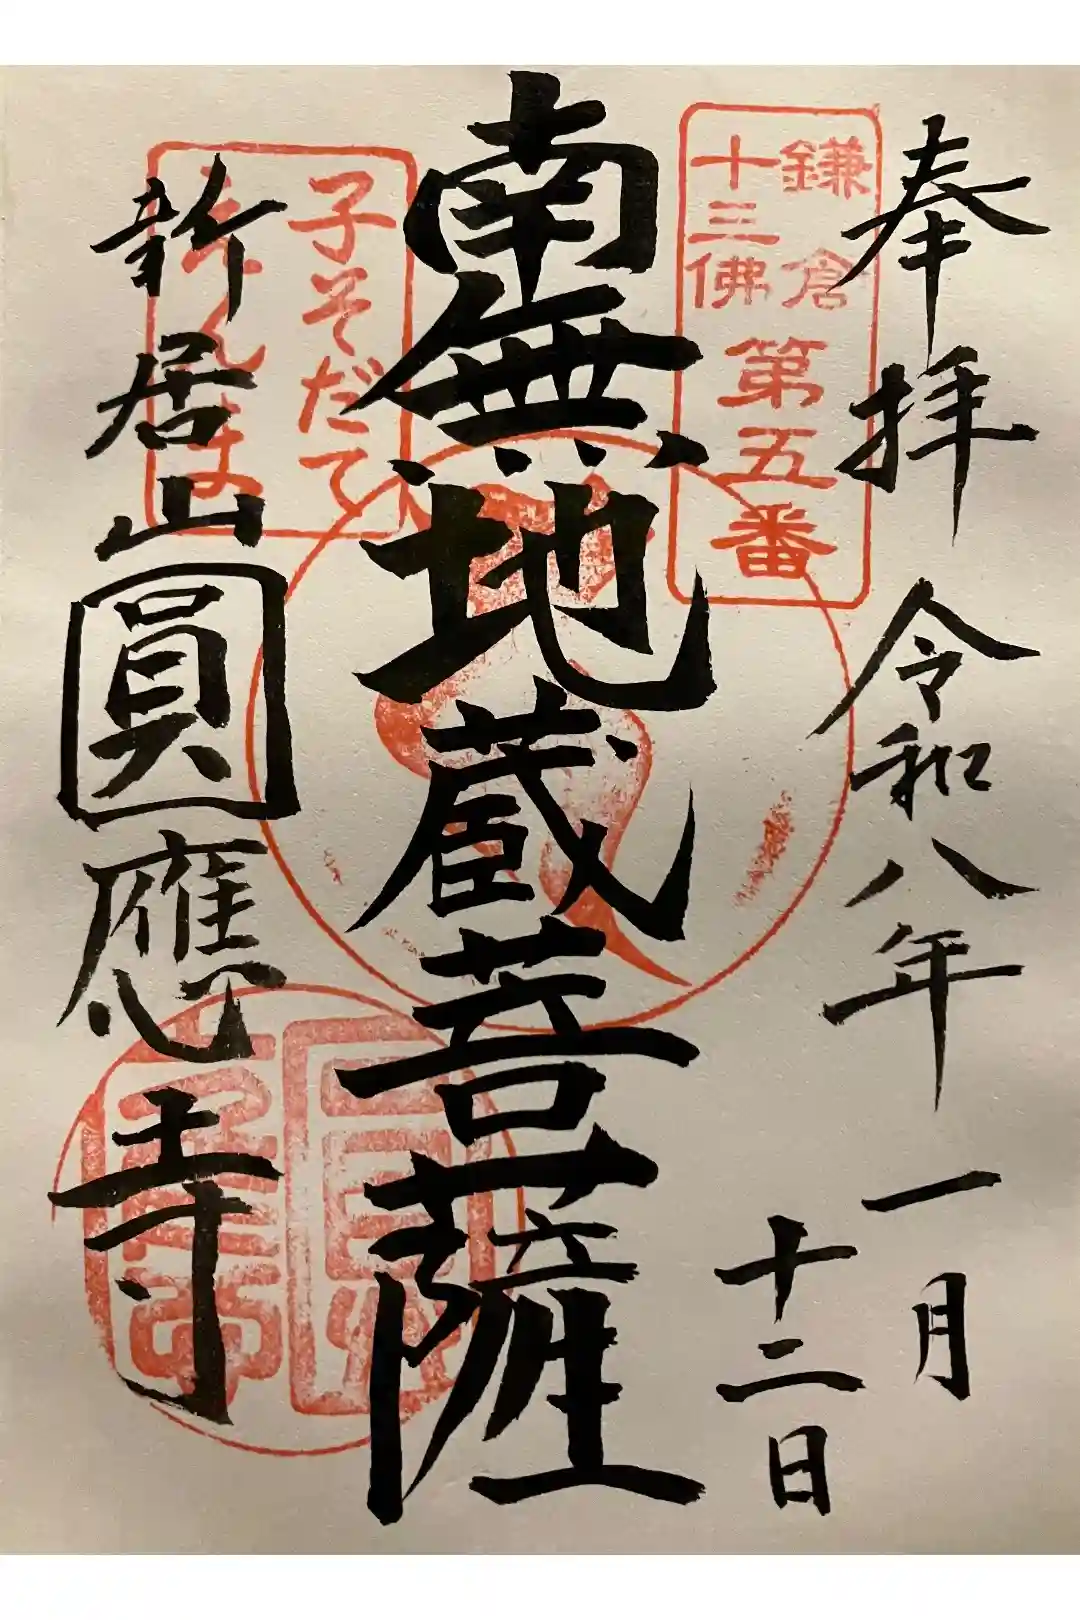 奉拝 令和八年一月
十二日
鎌倉
十三佛
第五番
南無地蔵菩薩
子そだて
えんま
新居山圓應寺